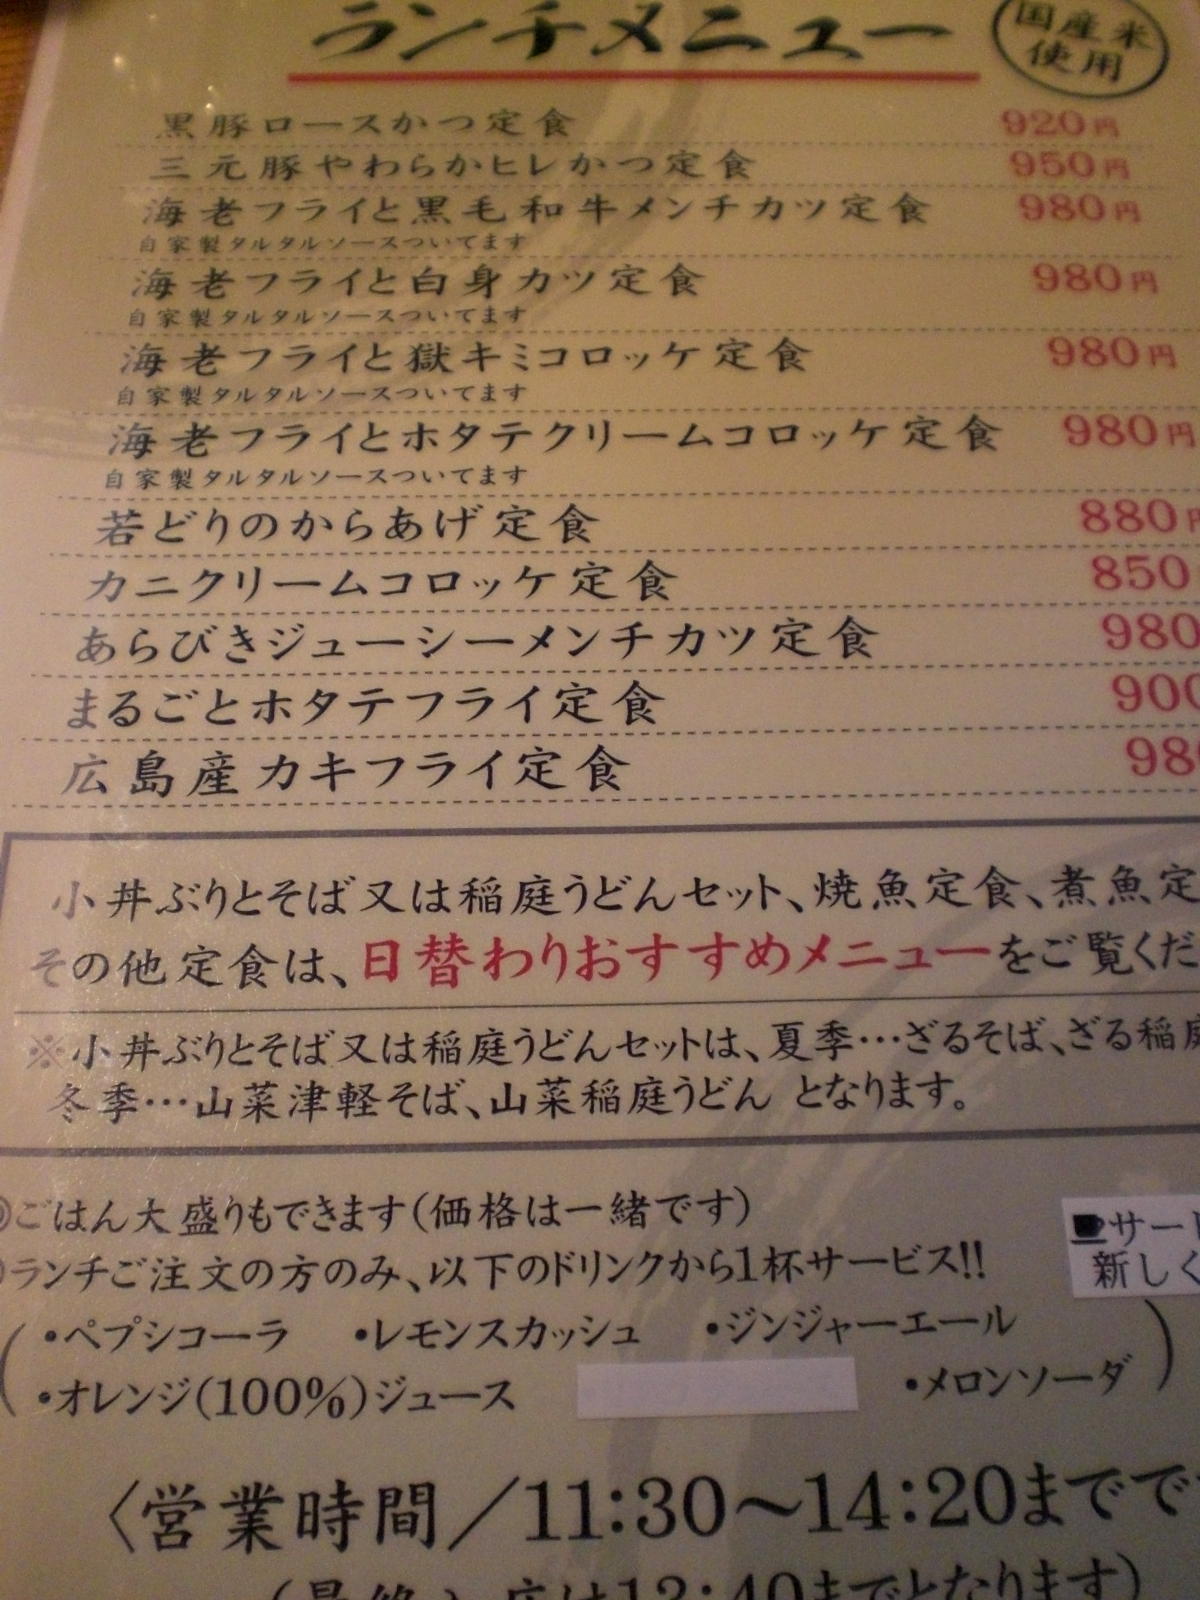 ランチメニュー
国産米
使用
黒豚ロースかつ定食 920円
三元豚やわらかヒレかつ定食 950円
海老フライと黒毛和牛メンチカツ定食 980円
自家製タルタルソースついてます
海老フライと白身カツ定食 980円
自家製タルタルソースついてます
海老フライと嶽キミコロッケ定食 980円
自家製タルタルソースついてます
海老フライとホタテクリームコロッケ定食 980円
自家製タルタルソースついてます
若どりのからあげ定食 880円
カニクリームコロッケ定食 850
あらびきジューシーメンチカツ定食 980
まるごとホタテフライ定食 900
広島産カキフライ定食 98
小丼ぶりとそば又は稲庭うどんセット、焼魚定食、煮魚定
その他定食は、日替わりおすすめメニューをご覧くだ
※小丼ぶりとそば又は稲庭うどんセットは、夏季…ざるそば、ざる稲庭
冬季…山菜津軽そば、山菜稲庭うどん となります。
◎ごはん大盛りもできます(価格は一緒です)
ランチご注文の方のみ、以下のドリンクから1杯サービス!!
サート
新しく
(•ペプシコーラ •レモンスカッシュ •ジンジャーエール
•オレンジ(100%)ジュース •メロンソーダ)
〈営業時間／11:30〜14:20までで
は13:40までとなります)